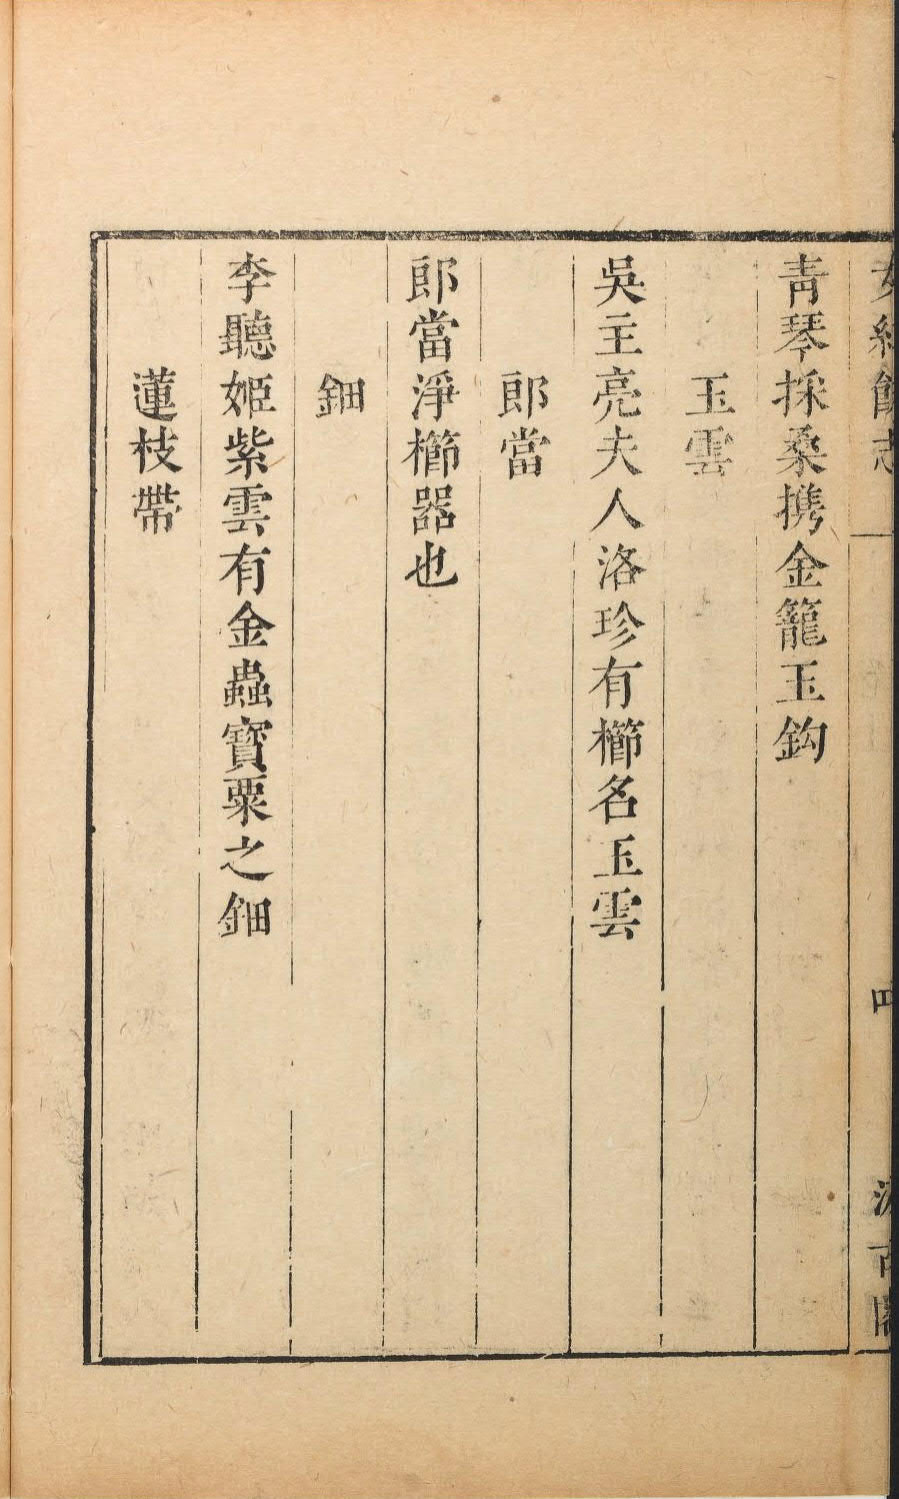 青琴採桑携金籠玉鈎
玉雲
吳主亮夫人洛珍有櫛名玉雲
郎當
郎當淨櫛器也
鈿
李聽姬紫雲有金蟲寶粟之鈿
蓮枝帶